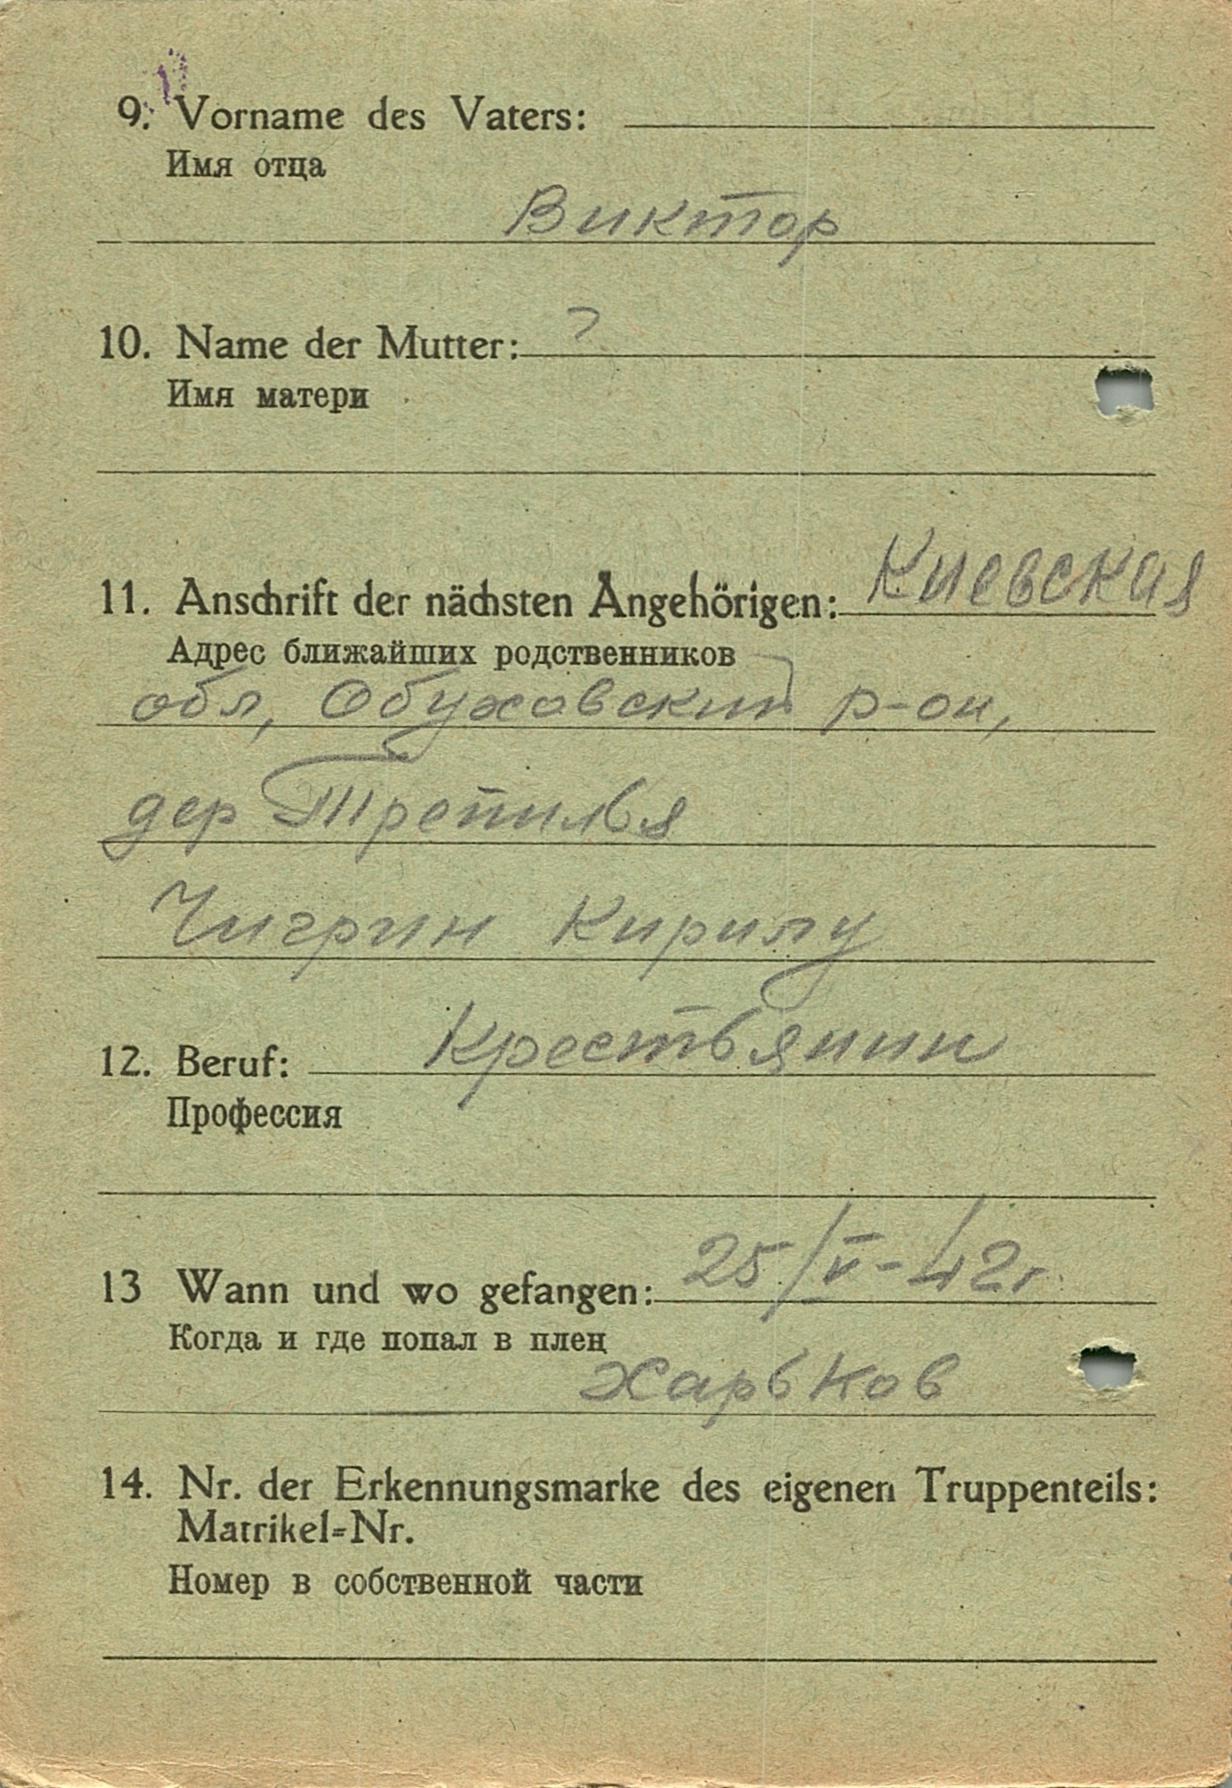 9. Vorname des Vaters:
Имя отца
Виктор
10. Name der Mutter: ?
Имя матери
11. Anschrift der nächsten Angehörigen: Киевская
Адрес ближайших родственников
обл, Обуховский р-он,
дер Трепилья
Чигрин Кирилу
12. Beruf: Крестьянин
Профессия
13 Wann und wo gefangen: 25/V-42г
Когда и где попал в плен
Харьков
14. Nr. der Erkennungsmarke des eigenen Truppenteils:
Matrikel=Nr.
Номер в собственной части